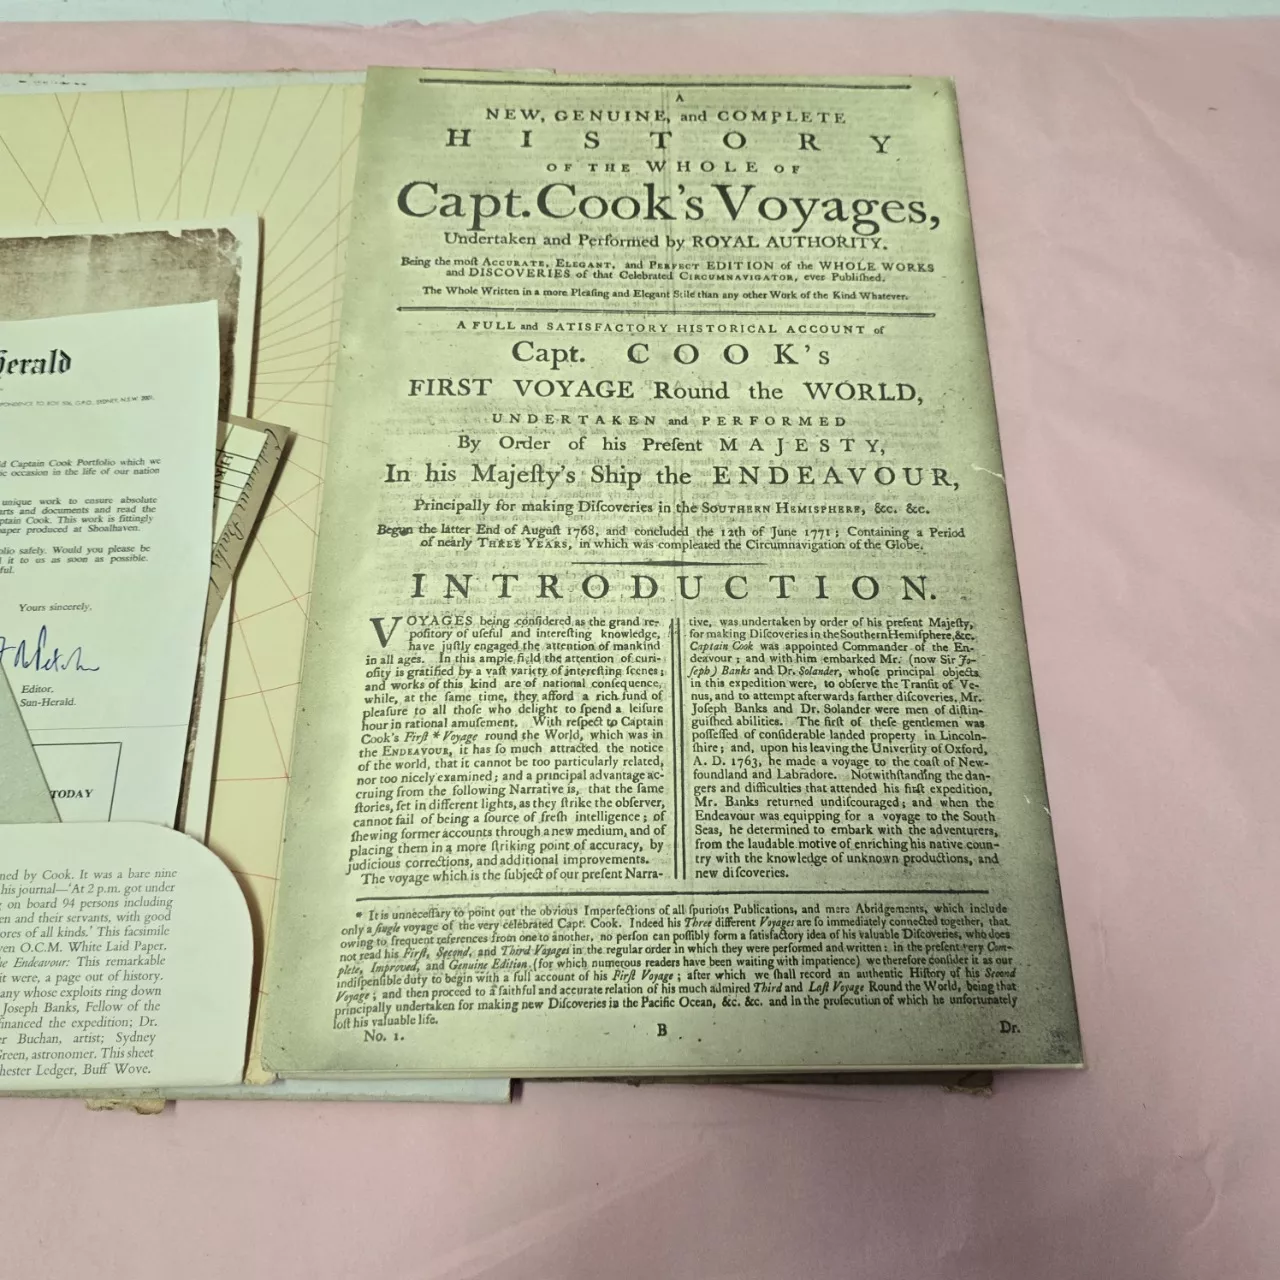 Herald
CORRESPONDENCE TO BOX 506, G.P.O., SYDNEY, N.S.W. 2001.
Captain Cook Portfolio which we
occasion in the life of our nation
unique work to ensure absolute
and documents and read the
Captain Cook. This work is fittingly
paper produced at Shoalhaven.
safely. Would you please be
it to us as soon as possible.
Yours sincerely,
Editor,
Sun-Herald.
TODAY
by Cook. It was a bare nine
his journal—'At 2 p.m. got under
on board 94 persons including
and their servants, with good
of all kinds.' This facsimile
O.C.M. White Laid Paper.
Endeavour: This remarkable
it were, a page out of history.
many whose exploits ring down
Joseph Banks, Fellow of the
financed the expedition; Dr.
Buchan, artist; Sydney
Green, astronomer. This sheet
Ledger, Buff Wove.
A
NEW, GENUINE, and COMPLETE
HISTORY
OF THE WHOLE OF
Capt. Cook's Voyages,
Undertaken and Performed by ROYAL AUTHORITY.
Being the moſt ACCURATE, ELEGANT, and PERFECT EDITION of the WHOLE WORKS
and DISCOVERIES of that Celebrated CIRCUMNAVIGATOR, ever Publiſhed.
The Whole Written in a more Pleaſing and Elegant Stile than any other Work of the Kind Whatever.
A FULL and SATISFACTORY HISTORICAL ACCOUNT of
Capt. COOK's
FIRST VOYAGE Round the WORLD,
UNDERTAKEN and PERFORMED
By Order of his Preſent MAJESTY,
In his Majeſty's Ship the ENDEAVOUR,
Principally for making Diſcoveries in the SOUTHERN HEMISPHERE, &c. &c.
Began the latter End of Auguſt 1768, and concluded the 12th of June 1771; Containing a Period
of nearly THREE YEARS, in which was compleated the Circumnavigation of the Globe.
INTRODUCTION.
VOYAGES being conſidered as the grand re-
poſitory of uſeful and intereſting knowledge,
have juſtly engaged the attention of mankind
in all ages. In this ample field the attention of curi-
oſity is gratified by a vaſt variety of intereſting ſcenes;
and works of this kind are of national conſequence,
while, at the ſame time, they afford a rich fund of
pleaſure to all thoſe who delight to ſpend a leiſure
hour in rational amuſement. With reſpect to Captain
Cook's Firſt * Voyage round the World, which was in
the ENDEAVOUR, it has ſo much attracted the notice
of the world, that it cannot be too particularly related,
nor too nicely examined; and a principal advantage ac-
cruing from the following Narrative is, that the ſame
ſtories, ſet in different lights, as they ſtrike the obſerver,
cannot fail of being a ſource of freſh intelligence; of
ſhewing former accounts through a new medium, and of
placing them in a more ſtriking point of accuracy, by
judicious corrections, and additional improvements.
The voyage which is the ſubject of our preſent Narra-
tive, was undertaken by order of his preſent Majeſty,
for making Diſcoveries in the Southern Hemiſphere, &c.
Captain Cook was appointed Commander of the En-
deavour; and with him embarked Mr. (now Sir Jo-
ſeph) Banks and Dr. Solander, whoſe principal objects
in this expedition were, to obſerve the Tranſit of Ve-
nus, and to attempt afterwards farther diſcoveries. Mr.
Joſeph Banks and Dr. Solander were men of diſtin-
guiſhed abilities. The firſt of theſe gentlemen was
poſſeſſed of conſiderable landed property in Lincoln-
ſhire; and, upon his leaving the Univerſity of Oxford,
A. D. 1763, he made a voyage to the coaſt of New-
foundland and Labradore. Notwithſtanding the dan-
gers and difficulties that attended his firſt expedition,
Mr. Banks returned undiſcouraged; and when the
Endeavour was equipping for a voyage to the South
Seas, he determined to embark with the adventurers,
from the laudable motive of enriching his native coun-
try with the knowledge of unknown productions, and
new diſcoveries.
* It is unneceſſary to point out the obvious Imperfections of all ſpurious Publications, and mere Abridgements, which include
only a ſingle voyage of the very celebrated Capt. Cook. Indeed his Three different Voyages are ſo immediately connected together, that
owing to frequent references from one to another, no perſon can poſſibly form a ſatisfactory idea of his valuable Diſcoveries, who does
not read his Firſt, Second, and Third Voyages in the regular order in which they were performed and written: in the preſent very Com-
plete, Improved, and Genuine Edition (for which numerous readers have been waiting with impatience) we therefore conſider it as our
indiſpenſible duty to begin with a full account of his Firſt Voyage; after which we ſhall record an authentic Hiſtory of his Second
Voyage; and then proceed to a faithful and accurate relation of his much admired Third and Laſt Voyage Round the World, being that
principally undertaken for making new Diſcoveries in the Pacific Ocean, &c. &c. and in the proſecution of which he unfortunately
loſt his valuable life.
No. 1. B Dr.